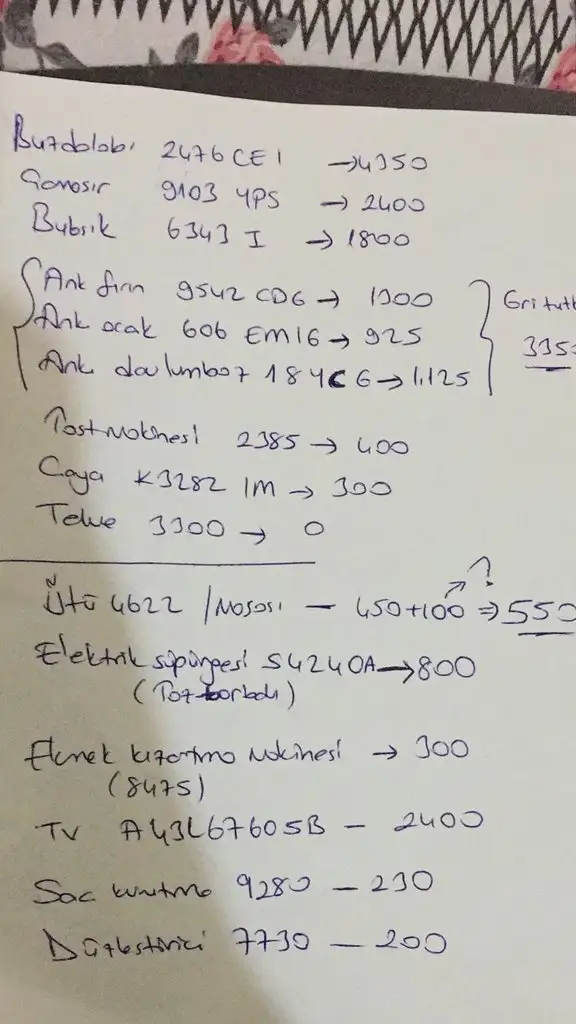 Buzdolabı 2476 CEI → 4350
Çamaşır 9103 YPS → 2400
Bulaşık 6343 I → 1800
Ank fırın 9542 CDG → 1300
Ank ocak 606 EMIG → 925
Ank. davlumbaz 184CG → 1.125
Gri tutt
335
Tost Makinesi 2385 → 400
Çaya K3282 IM → 300
Telve 3300 → 0
Ütü 4622 / Masası – 450+100 ⇒ 550
?
Elektrik süpürgesi S4240A → 800
(Toz torbalı)
Ekmek kızartma Makinesi → 300
(8475)
TV A43L6760 5B – 2400
Saç kurutma 9280 – 230
Düzleştirici 7730 – 200